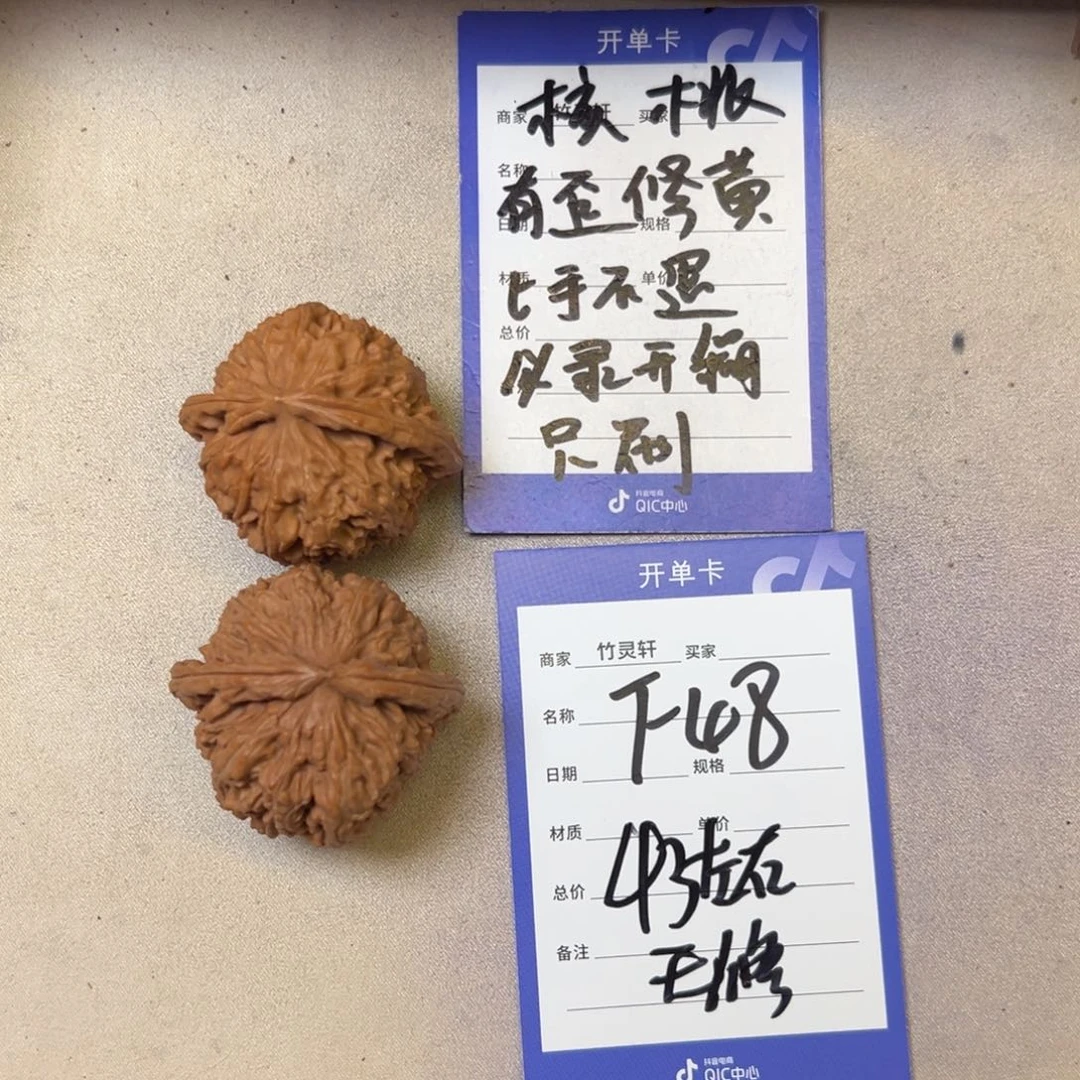 开单卡
核桃
商家 竹灵轩 买家
名称
有歪修黄
日期 规格
上手不退
材质 单价
总价
必录开箱
只刷
抖音电商
QIC中心
开单卡
商家 竹灵轩 买家
名称 T-48
日期 规格
材质 单价
43左右
总价
备注
无修
抖音电商
QIC中心